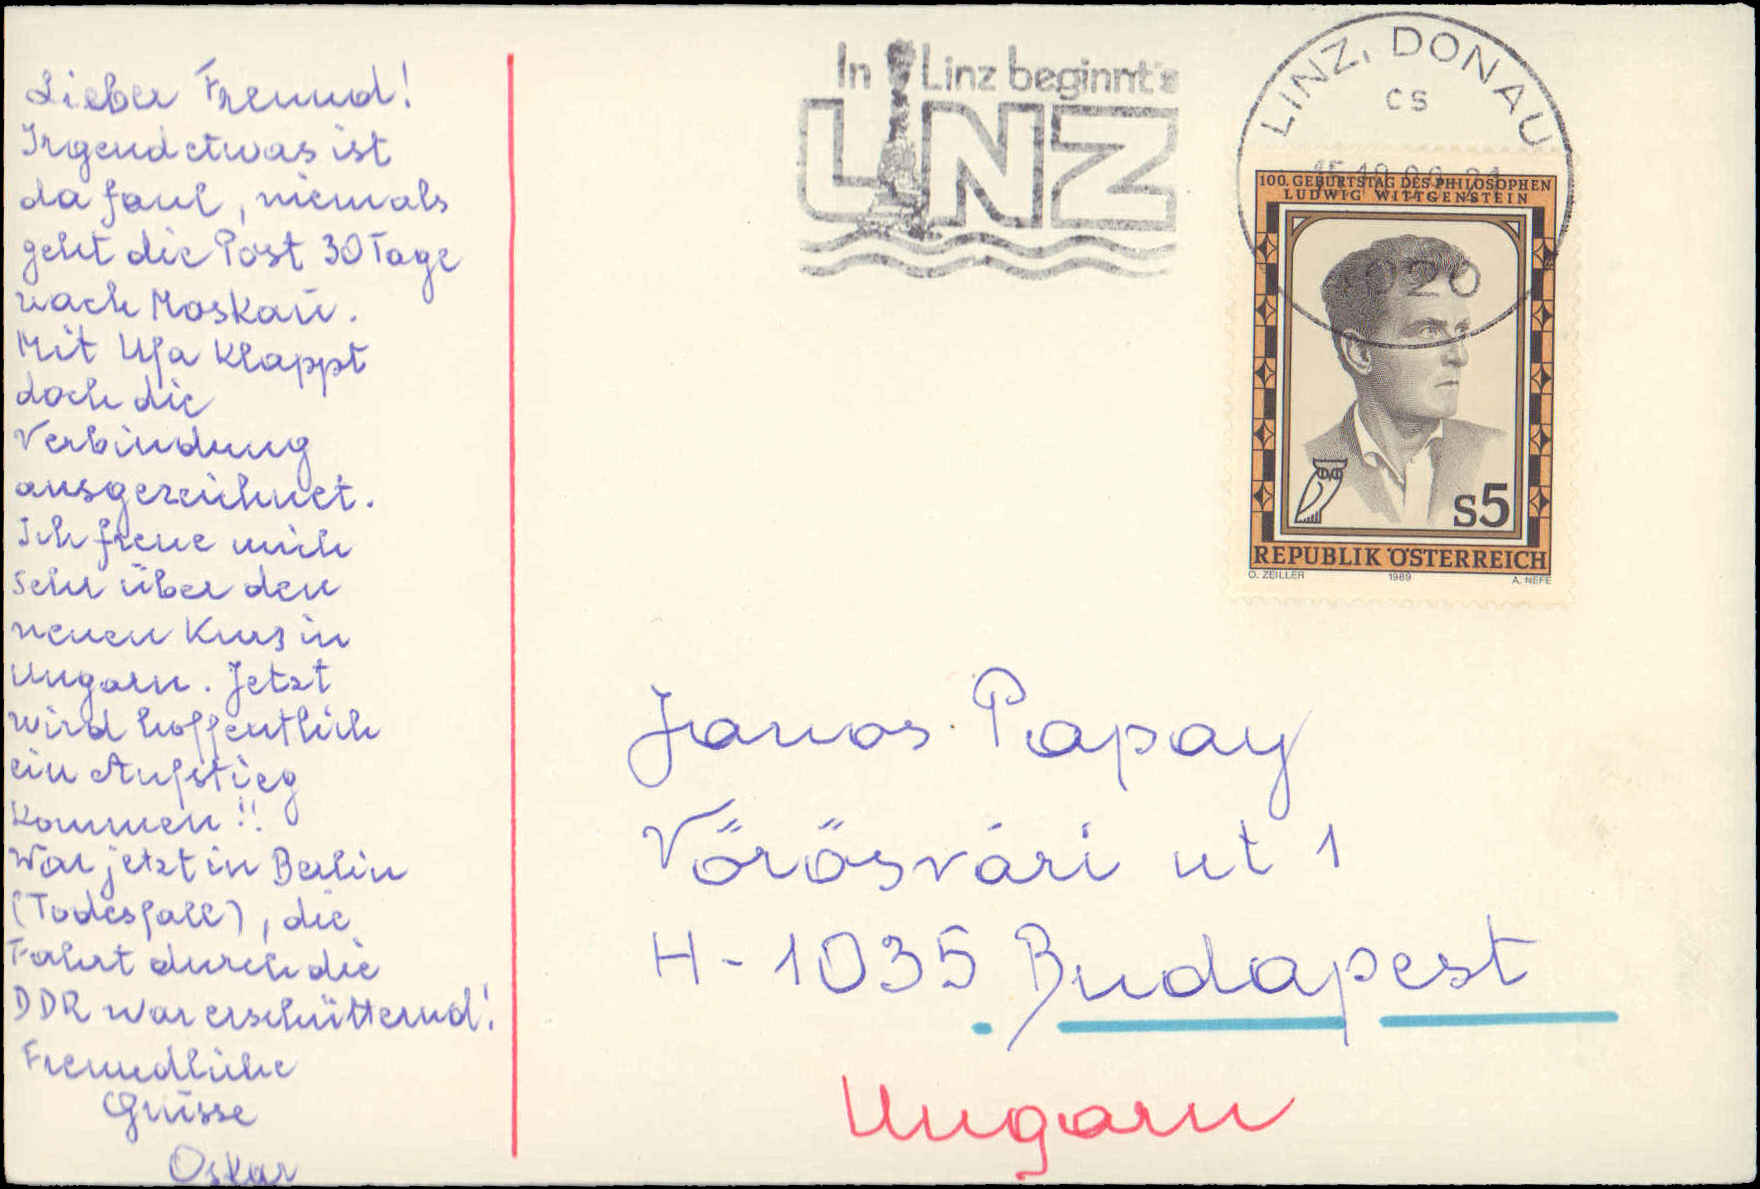 Lieber Freund!
Irgend etwas ist
da faul, niemals
geht die Post 30 Tage
nach Moskau.
Mit Ufa klappt
doch die
Verbindung
ausgezeichnet.
Ich freue mich
sehr über den
neuen Kurs in
Ungarn. Jetzt
wird hoffentlich
ein Aufstieg
kommen!!
War jetzt in Berlin
(Todesfall), die
Fahrt durch die
DDR war erschütternd!
Freundliche
Grüsse
Oskar
In Linz beginnt's
LINZ
LINZ, DONAU
cs
4020
100. GEBURTSTAG DES PHILOSOPHEN
LUDWIG WITTGENSTEIN
S5
REPUBLIK ÖSTERREICH
O. ZEILLER 1989 A. NEFE
Janos Papay
Vőrősvári ut 1
H-1035 Budapest
Ungarn